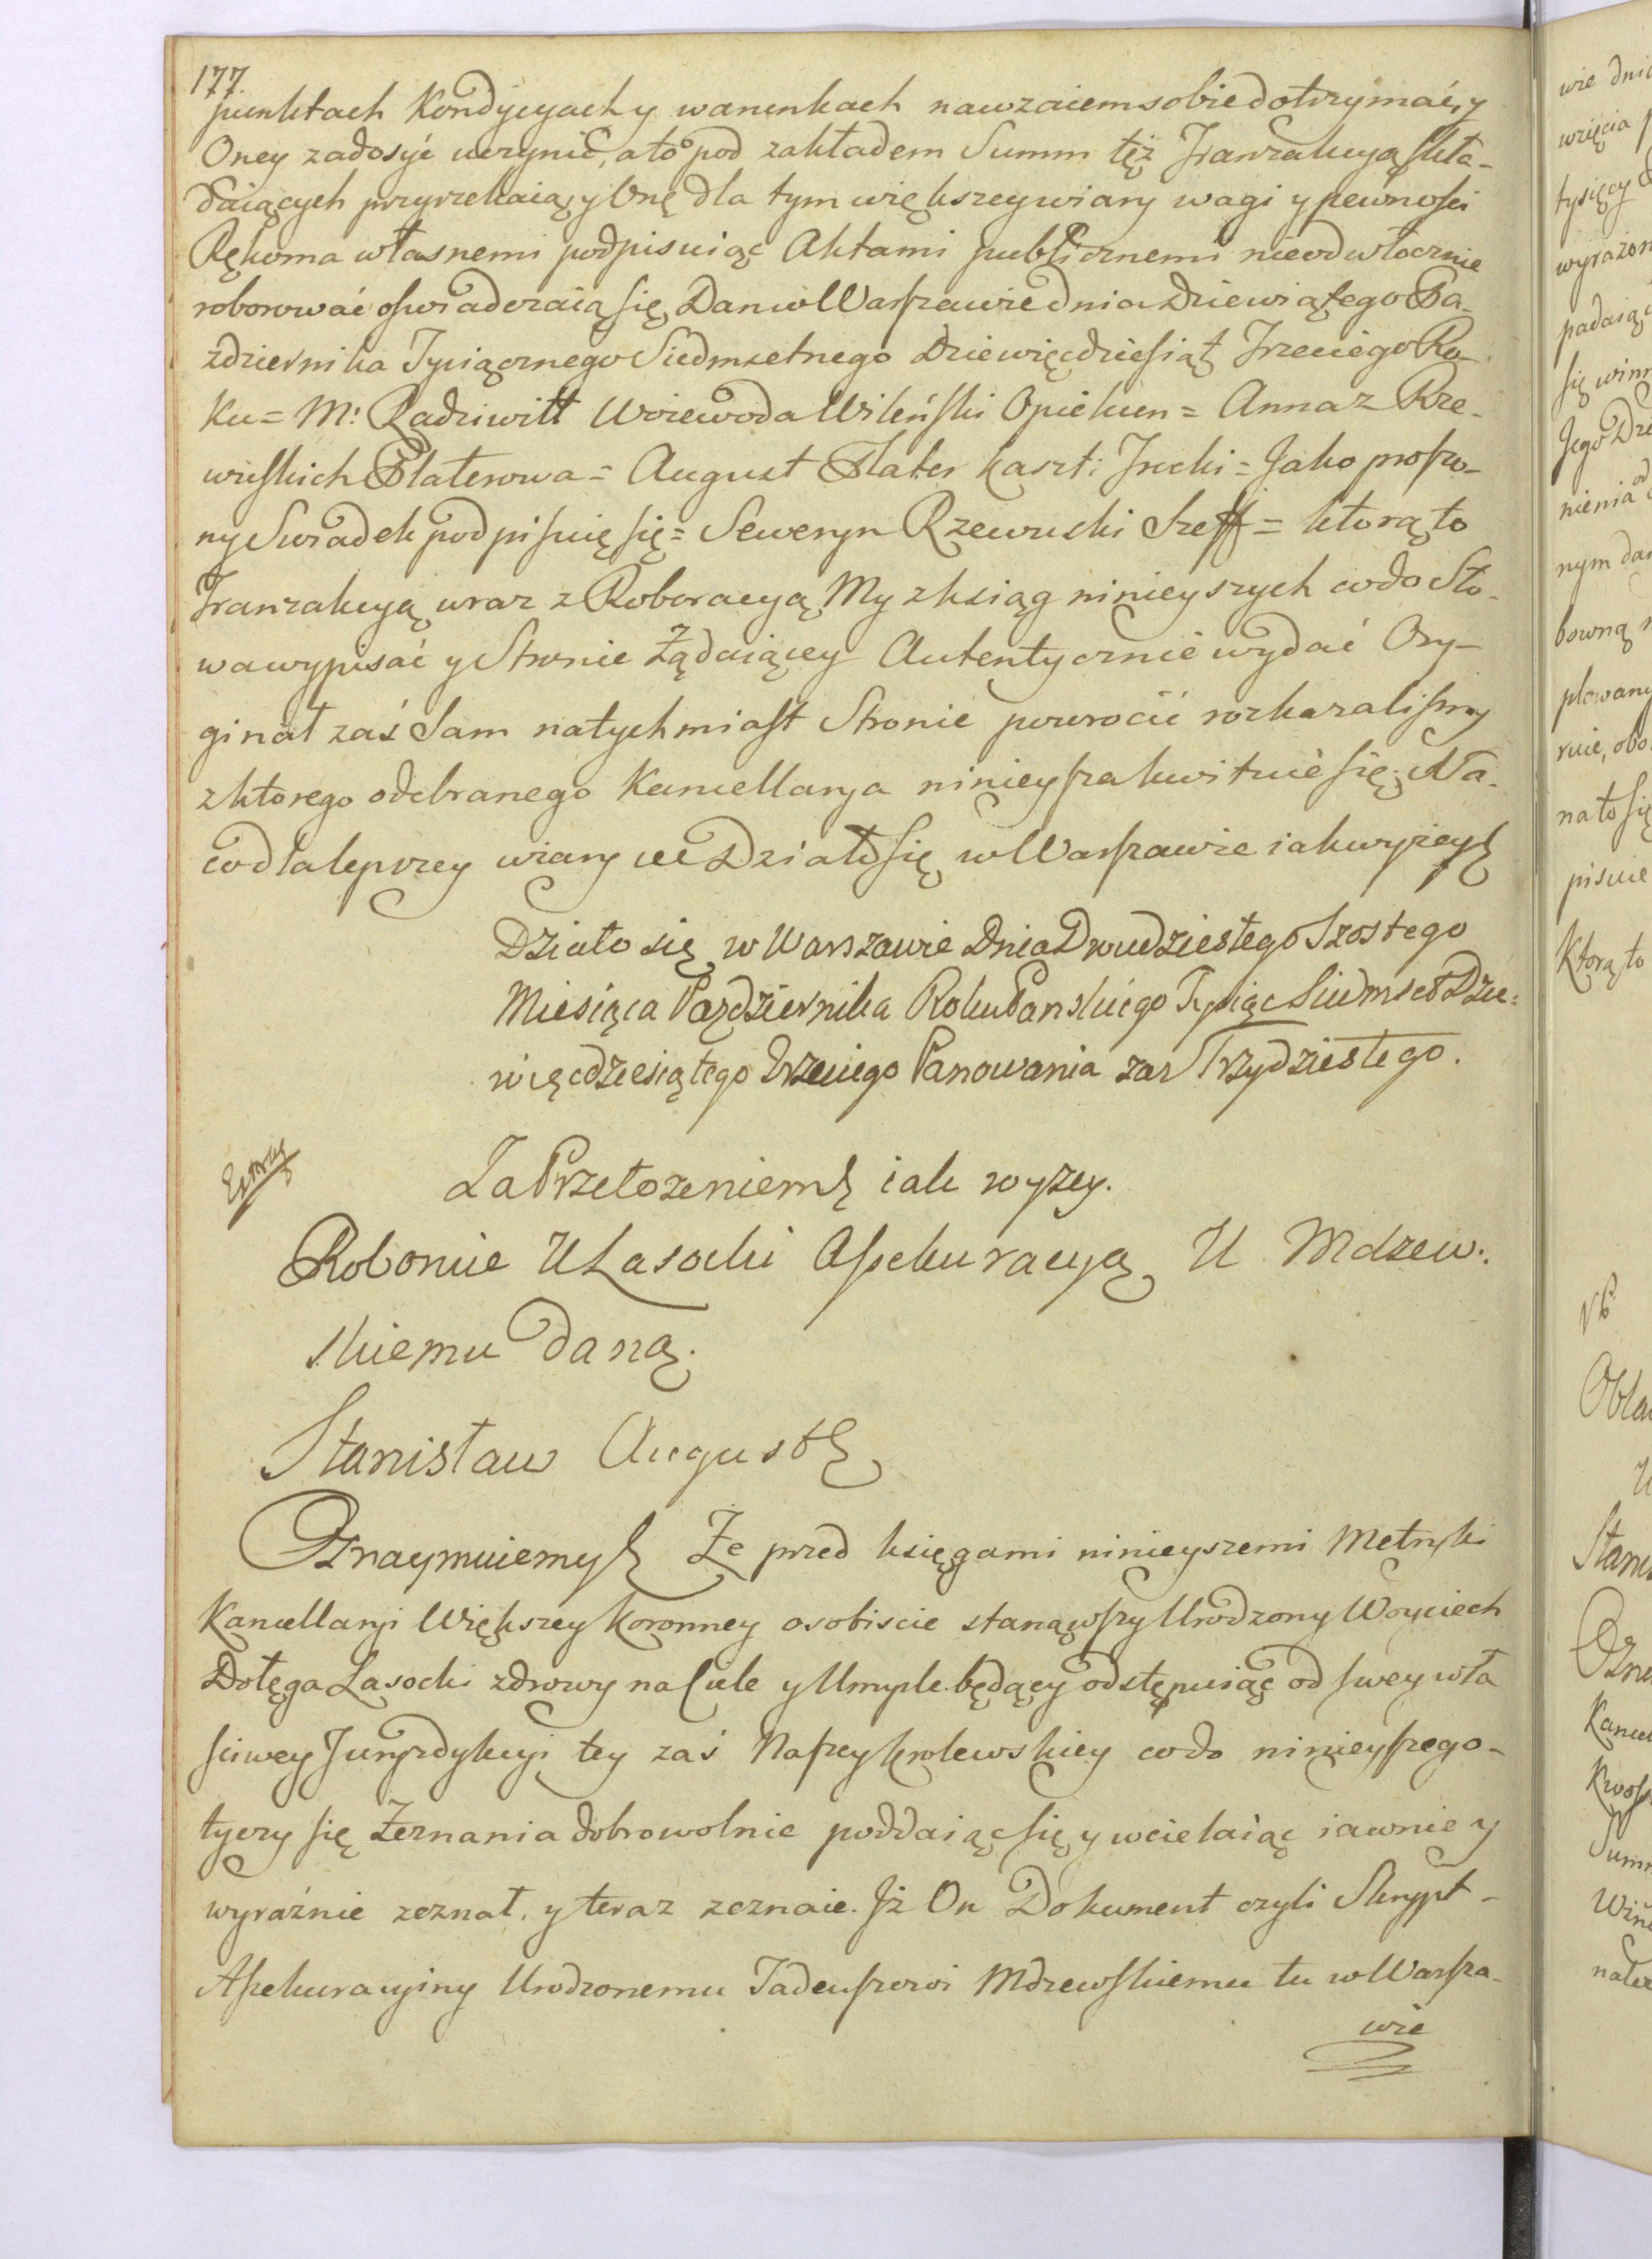 177.
punktach Kondycyach y warunkach nawzaiem sobie dotrzymać, y
Oney zadosyć uczynić, a to pod zakładem Summ tęż Tranzakcyą skła-
daiących przyrzekaią, y Onę dla tym większey wiary wagi y pewności
Rękoma własnemi podpisuiąc Aktami publicznemi nieodwłocznie
roborować oswiadczaią się, Dan w Warszawie dnia Dziewiątego Pa-
zdziernika Tysiącznego Siedmsetnego Dziewięćdziesiąt Trzeciego Ro-
ku = M: Radziwiłł Woiewoda Wileński Opiekun = Anna z Rze-
wuskich Platerowa = August Plater kaszt: Trocki = Jako proszo-
ny Swiadek podpisuię się = Seweryn Rzewuski Szeff = ktorą to
Tranzakcyą wraz z Roboracyą My z ksiąg ninieyszych co do Sło-
wa wypisać y Stronie Żądaiącey Autentycznie wydać Ory-
ginał zaś Sam natychmiast Stronie powrocić rozkazalismy
z ktorego odebranego Kancellarya ninieysza kwituie się. Na-
co dla lepszey wiary &c Działo się w Warszawie iak wyżey
Działo się w Warszawie Dnia Dwudziestego Szostego
Miesiąca Pazdziernika Roku Panskiego Tysiąc Siedmset Dzie=
więcdziesiątego Trzeciego Panowania zas Trzydziestego.
Za Przełozeniem iak wyzey.
Roboruie U Lasocki Assekuracyą U Mdzew.
skiemu daną.
Stanisław August
Oznaymuiemy Że przed księgami ninieyszemi Metryki
Kancellaryi Większey Koronney osobiscie stanąwszy Urodzony Woyciech
Dołęga Lasocki zdrowy na Ciele y Umysle będący odstępuiąc od swey wła
sciwey Juryzdykcyi, tey zaś Naszey krolewskiey co do ninieyszego-
tyczy się Zeznania dobrowolnie poddaiąc się y wcielaiąc iawnie y
wyraźnie zeznał, y teraz zeznaie. Jż On Dokument czyli Skrypt-
Assekuracyiny Urodzonemu Tadeuszowi Mdzewskiemu tu w Warsza-
wie